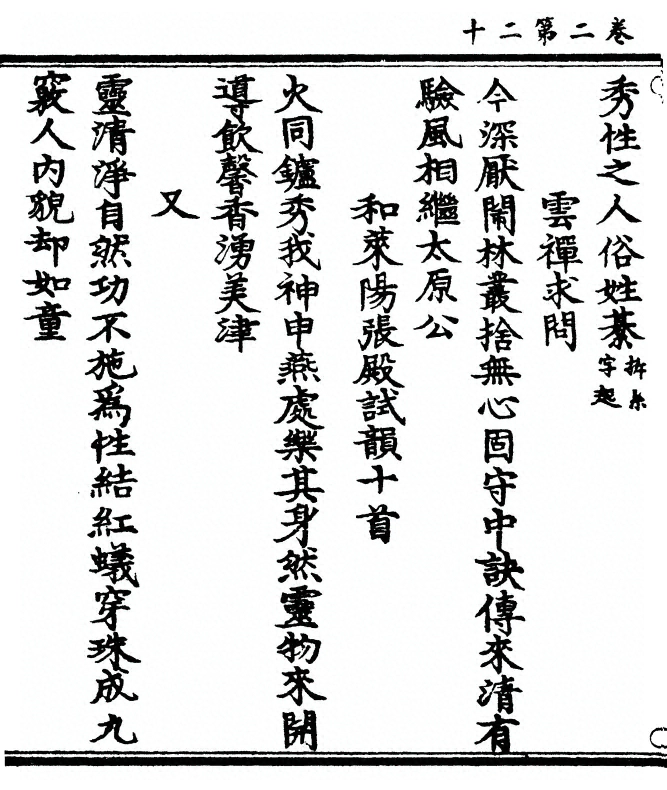 卷二第二十
秀性之人俗姓綦拆糸字起
雲禪求問
今深厭鬧林叢捨無心固守中訣傳來清有
驗風相繼太原公
和萊陽張殿試韻十首
火同鑪秀我神申燕處樂其身然靈物來開
導飲馨香湧美津
又
靈清淨自然功不施爲性結紅蟻穿珠成九
竅人內貌却如童